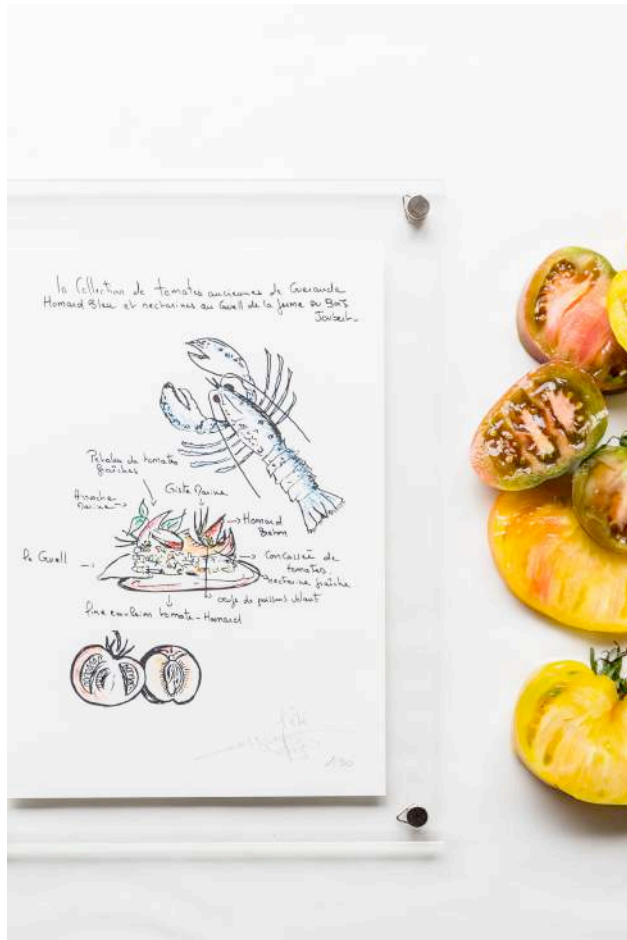 la Collection de tomates anciennes de Guérande
Homard Bleu et nectarines au Gwell de la ferme du Bois
Joubert
Pétales de tomates
fraîches
Arroche
marine
Ciste marine
Homard
le Gwell
Concassée de
tomates
nectarine fraîche
œufs de poissons volant
fine émulsion tomate-Homard
130